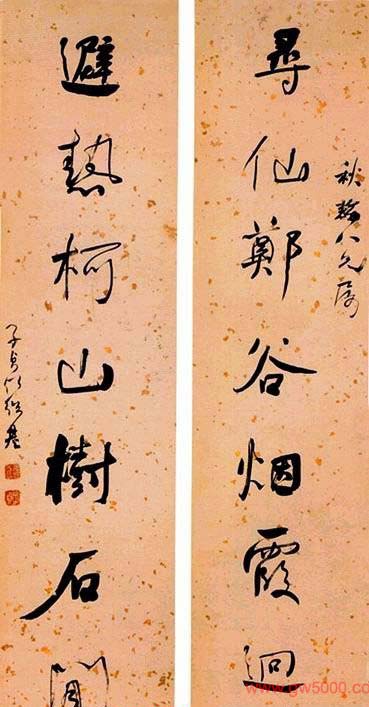 秋八兄属
尋仙鄭谷烟霞迥
避熱柯山樹石
子貞何紹基
www.gw5000.com